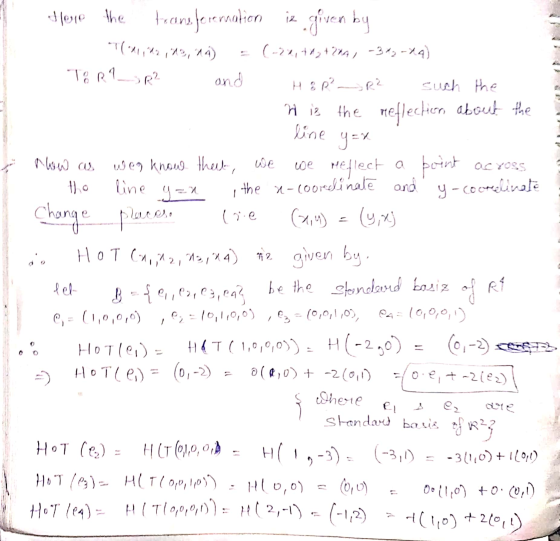 Here the transformation is given by
T(x1,x2,x3,x4) = (-2x1+x2+2x4, -3x2-x4)
T: R4→R2 and H: R2→R2 such the
H is the reflection about the
line y=x
Now as we know that, we we reflect a point across
the line y=x, the x-coordinate and y-coordinate
Change places. (i.e (x,y) = (y,x)
∴ HOT (x1,x2,x3,x4) is given by.
let B = {e1,e2,e3,e4} be the standard basis of R4
e1=(1,0,0,0), e2=(0,1,0,0), e3=(0,0,1,0), e4=(0,0,0,1)
∴ HOT(e1) = H(T(1,0,0,0)) = H(-2,0) = (0,-2)
=) HOT(e1) = (0,-2) = 0(1,0) + -2(0,1) = 0·e1 + -2(e2)
{ where e1 & e2 are
standard basis of R2}
HOT (e2) = H(T(0,1,0,0)) = H(1,-3) = (-3,1) = -3(1,0)+1(0,1)
HOT (e3) = H(T(0,0,1,0)) = H(0,0) = (0,0) = 0·(1,0) +0·(0,1)
HOT (e4) = H(T(0,0,0,1)) = H(2,-1) = (-1,2) = -1(1,0) +2(0,1)